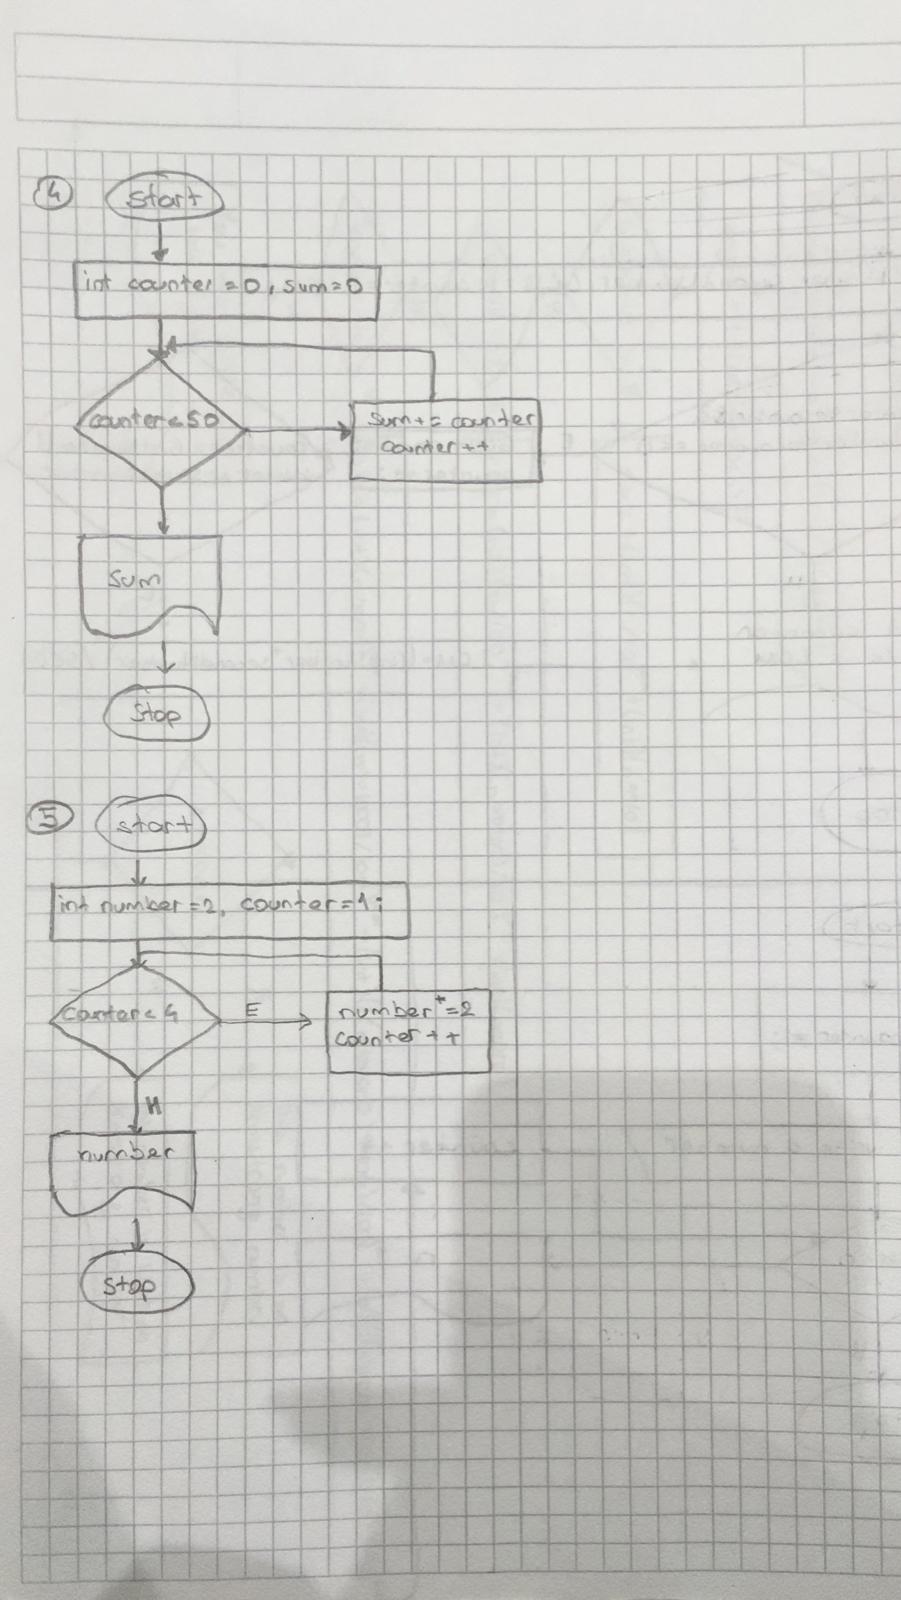 4
start
int counter = 0, sum=0
counter<50
sum+= counter
counter ++
sum
stop
5
start
int number=2, counter=1;
counter<4
E
number*=2
counter++
H
number
stop